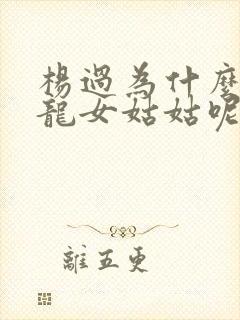 楊過為什麼
龍女姑姑呢
離五更